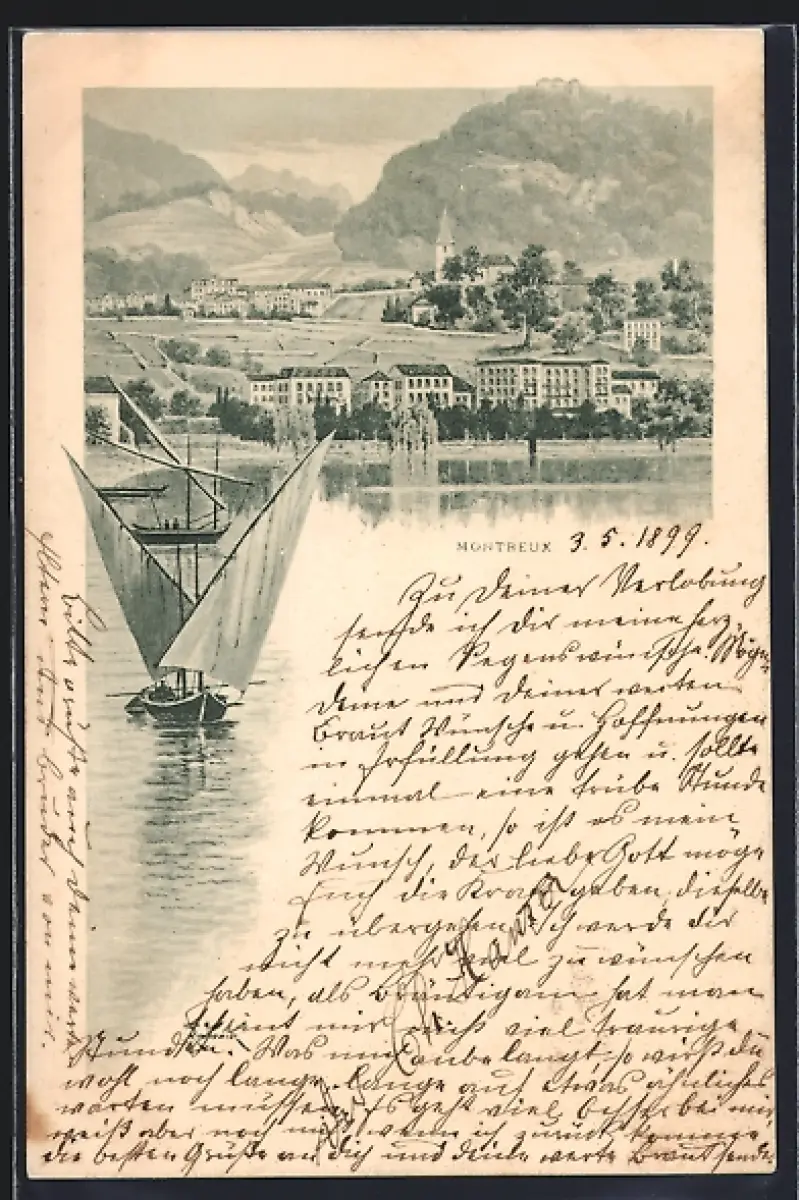 MONTREUX 3. 5. 1899.
Zu Deiner Verlobung
sende ich dir meine herz-
lichen Segenswünsche. Möge
Deine und Deiner werten
Braut Wünsche u. Hoffnungen
in Erfüllung gehen u. sollte
einmal eine trübe Stunde
kommen, so ist es mein
Wunsch, der liebe Gott möge
Euch die Kraft geben, dieselbe
zu übergehen. Ich werde dir
nicht mehr viel zu wünschen
haben, als Bräutigam hat man
scheint mir nicht viel traurige
Stunden. Was mich anbelangt, so wirst du
wohl noch lange, lange auf etwas ähnliches
warten müssen. Es geht viel besser bei mir,
weiß aber noch nicht wenn ich zurück komme.
die besten Grüße an dich und deine werte Braut sendet
Bitte grüße auch deine werten
Eltern und Bruder von mir.